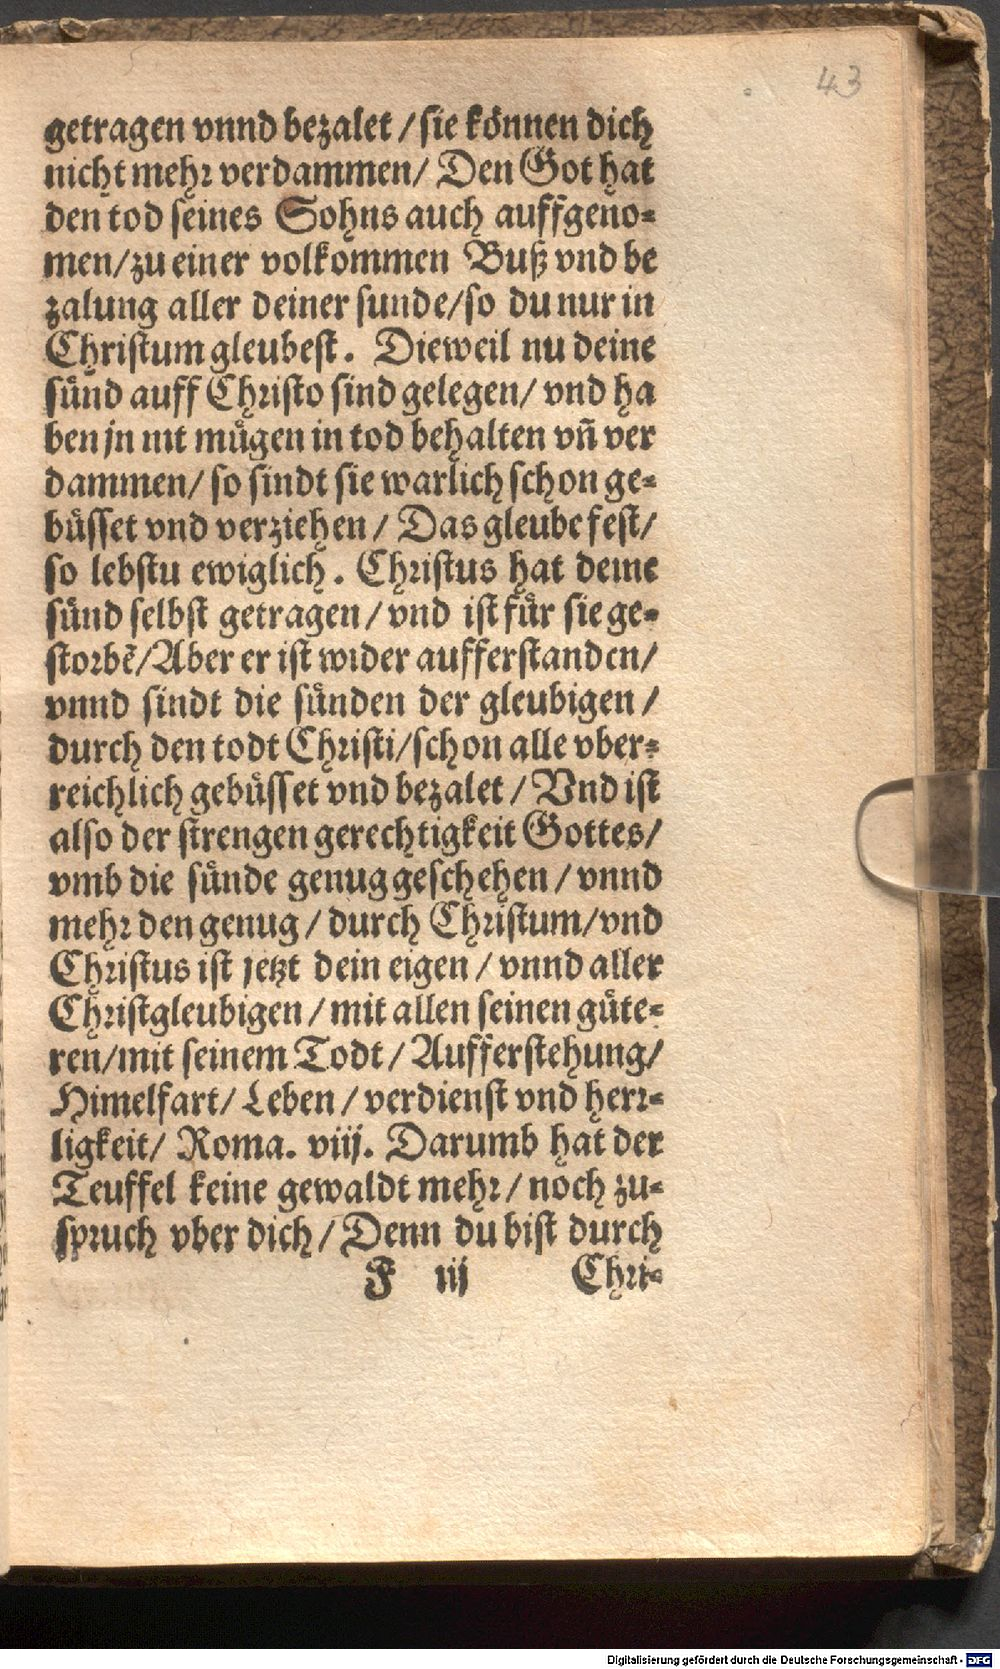 43
getragen vnnd bezalet / sie können dich
nicht mehr verdammen / Den Got hat
den tod seines Sohns auch auffgeno-
men / zu einer volkommen Buß vnd be
zalung aller deiner sunde / so du nur in
Christum gleubest. Dieweil nu deine
sünd auff Christo sind gelegen / vnd ha
ben jn nit mügen in tod behalten vñ ver
dammen / so sindt sie warlich schon ge-
büsset vnd verziehen / Das gleube fest /
so lebstu ewiglich. Christus hat deine
sünd selbst getragen / vnd ist für sie ge-
storbē / Aber er ist wider aufferstanden /
vnnd sindt die sünden der gleubigen /
durch den todt Christi / schon alle vber-
reichlich gebüsset vnd bezalet / Vnd ist
also der strengen gerechtigkeit Gottes /
vmb die sünde genug geschehen / vnnd
mehr den genug / durch Christum / vnd
Christus ist jetzt dein eigen / vnnd aller
Christgleubigen / mit allen seinen güte-
ren / mit seinem Todt / Aufferstehung /
Himelfart / Leben / verdienst vnd herr-
ligkeit / Roma. viij. Darumb hat der
Teuffel keine gewaldt mehr / noch zu-
spruch vber dich / Denn du bist durch
F iij Chri-
Digitalisierung gefördert durch die Deutsche Forschungsgemeinschaft - DFG